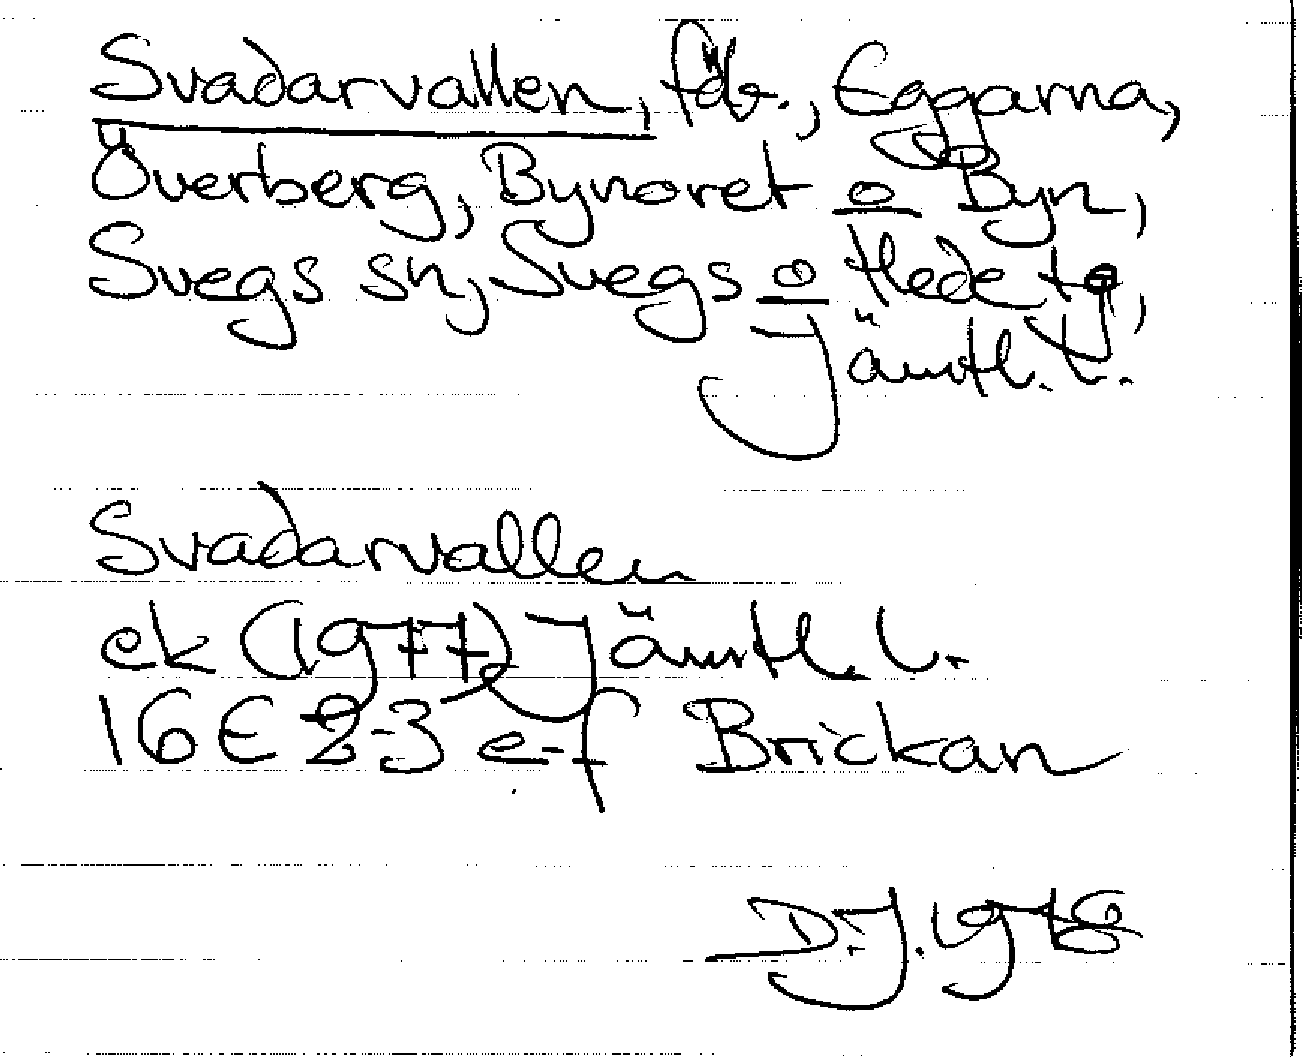 Svadarvallen, fdv., Eggarna,
Överberg, Bynoret o Byn,
Svegs sn, Svegs o Hede tg,
Jämtl. l.
Svadarvallen
ek (1977) Jämtl. l.
16E 2-3 e-f Brickan
D.J. 1978